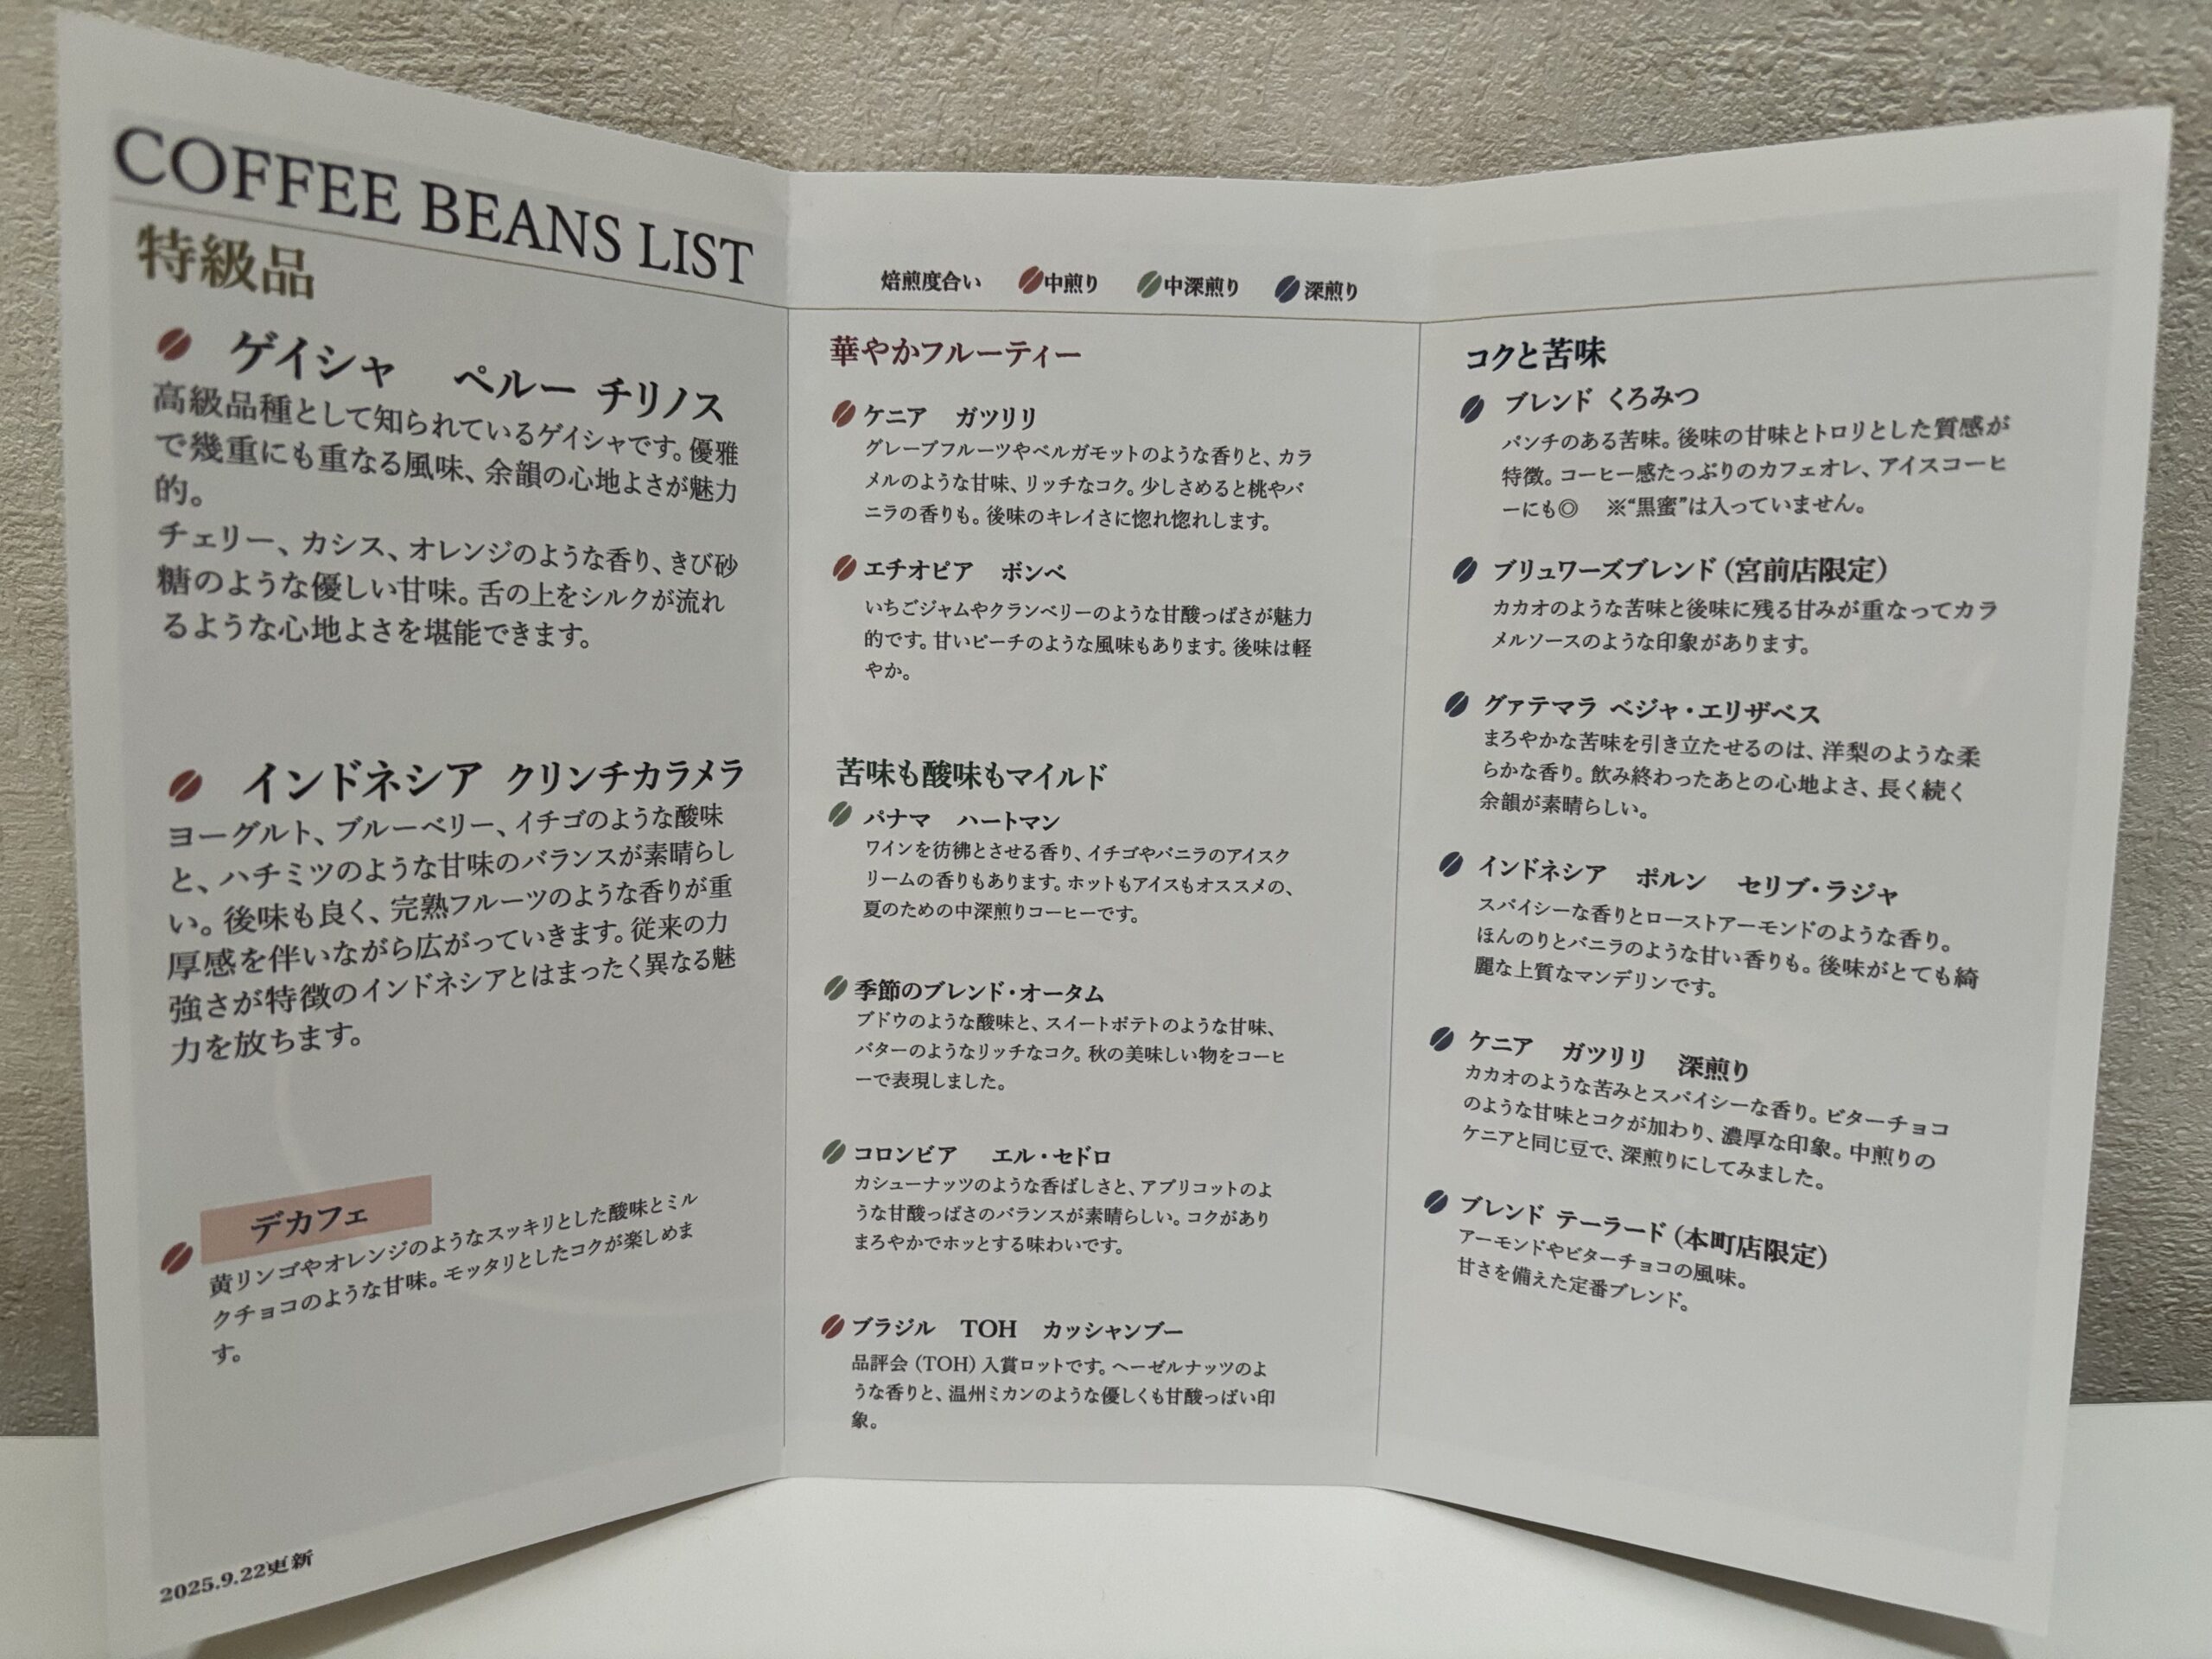 COFFEE BEANS LIST
特級品
ゲイシャ　ペルー チリノス
高級品種として知られているゲイシャです。優雅
で幾重にも重なる風味、余韻の心地よさが魅力
的。
チェリー、カシス、オレンジのような香り、きび砂
糖のような優しい甘味。舌の上をシルクが流れ
るような心地よさを堪能できます。
インドネシア クリンチカラメラ
ヨーグルト、ブルーベリー、イチゴのような酸味
と、ハチミツのような甘味のバランスが素晴らし
い。後味も良く、完熟フルーツのような香りが重
厚感を伴いながら広がっていきます。従来の力
強さが特徴のインドネシアとはまったく異なる魅
力を放ちます。
デカフェ
黄リンゴやオレンジのようなスッキリとした酸味とミル
クチョコのような甘味。モッタリとしたコクが楽しめま
す。
2025.9.22更新
焙煎度合い　中煎り　中深煎り　深煎り
華やかフルーティー
ケニア　ガツリリ
グレープフルーツやベルガモットのような香りと、カラ
メルのような甘味、リッチなコク。少しさめると桃やバ
ニラの香りも。後味のキレイさに惚れ惚れします。
エチオピア　ボンベ
いちごジャムやクランベリーのような甘酸っぱさが魅力
的です。甘いピーチのような風味もあります。後味は軽
やか。
苦味も酸味もマイルド
パナマ　ハートマン
ワインを彷彿とさせる香り、イチゴやバニラのアイスク
リームの香りもあります。ホットもアイスもオススメの、
夏のための中深煎りコーヒーです。
季節のブレンド・オータム
ブドウのような酸味と、スイートポテトのような甘味、
バターのようなリッチなコク。秋の美味しい物をコーヒ
ーで表現しました。
コロンビア　エル・セドロ
カシューナッツのような香ばしさと、アプリコットのよ
うな甘酸っぱさのバランスが素晴らしい。コクがあり
まろやかでホッとする味わいです。
ブラジル　TOH　カッシャンブー
品評会（TOH）入賞ロットです。ヘーゼルナッツのよ
うな香りと、温州ミカンのような優しくも甘酸っぱい印
象。
コクと苦味
ブレンド くろみつ
パンチのある苦味。後味の甘味とトロリとした質感が
特徴。コーヒー感たっぷりのカフェオレ、アイスコーヒ
ーにも◎　※“黒蜜”は入っていません。
ブリュワーズブレンド（宮前店限定）
カカオのような苦味と後味に残る甘みが重なってカラ
メルソースのような印象があります。
グァテマラ ベジャ・エリザベス
まろやかな苦味を引き立たせるのは、洋梨のような柔
らかな香り。飲み終わったあとの心地よさ、長く続く
余韻が素晴らしい。
インドネシア　ポルン　セリブ・ラジャ
スパイシーな香りとローストアーモンドのような香り。
ほんのりとバニラのような甘い香りも。後味がとても綺
麗な上質なマンデリンです。
ケニア　ガツリリ　深煎り
カカオのような苦みとスパイシーな香り。ビターチョコ
のような甘味とコクが加わり、濃厚な印象。中煎りの
ケニアと同じ豆で、深煎りにしてみました。
ブレンド テーラード（本町店限定）
アーモンドやビターチョコの風味。
甘さを備えた定番ブレンド。